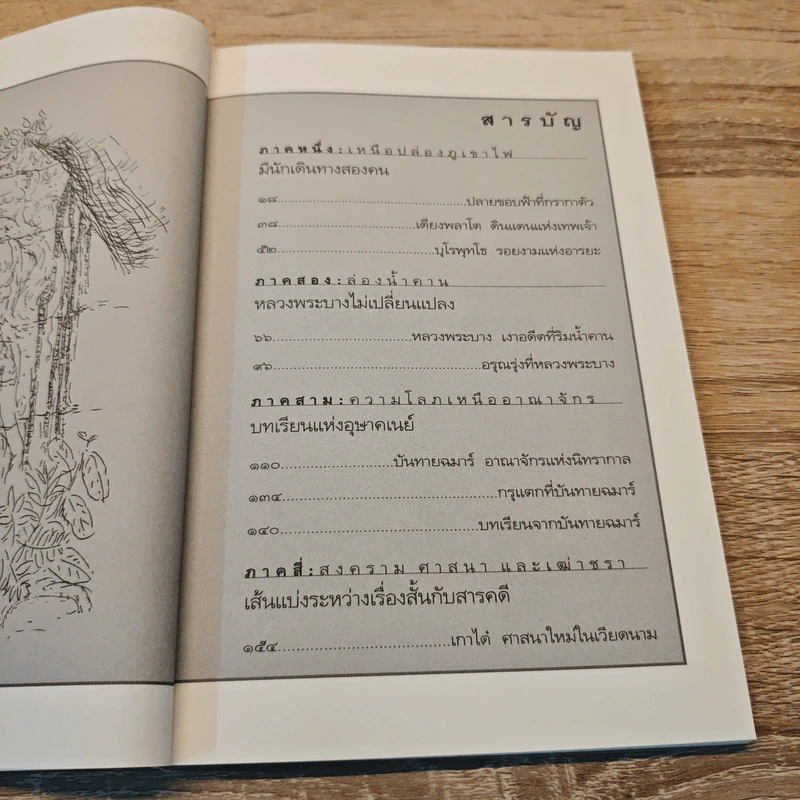 สารบัญ
ภาคหนึ่ง:เหนือปล่องภูเขาไฟ
มีนักเดินทางสองคน
๑๘..............................................ปลายขอบฟ้าที่กรากาตัว
๓๘...................................เดียงพลาโต ดินแดนแห่งเทพเจ้า
๕๒.......................................บุโรพุทโธ รอยงามแห่งอารยะ
ภาคสอง:ล่องน้ำคาน
หลวงพระบางไม่เปลี่ยนแปลง
๖๖.................................หลวงพระบาง เงาอดีตที่ริมน้ำคาน
๙๖..................................................อรุณรุ่งที่หลวงพระบาง
ภาคสาม:ความโลภเหนืออาณาจักร
บทเรียนแห่งอุษาคเนย์
๑๑๐..........................บันทายฉมาร์ อาณาจักรแห่งนิทรากาล
๑๓๔...................................................กรุแตกที่บันทายฉมาร์
๑๔๐...............................................บทเรียนจากบันทายฉมาร์
ภาคสี่:สงคราม ศาสนา และเฒ่าชรา
เส้นแบ่งระหว่างเรื่องสั้นกับสารคดี
๑๕๔........................................เกาได๋ ศาสนาใหม่ในเวียดนาม